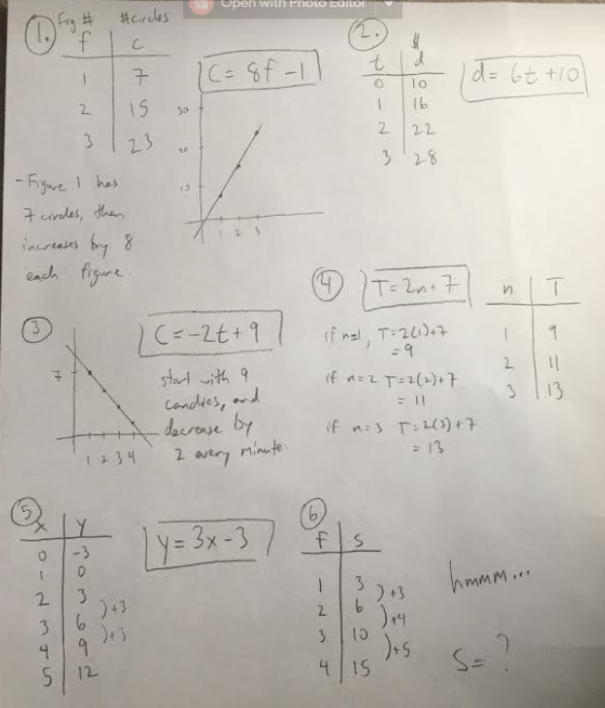 Open with Photo Editor
1.
Fig # #circles
f c
1 7
2 15
3 23
C = 8f - 1
30
20
10
1 2 3
- Figure 1 has
7 circles, then
increases by 8
each figure.
2.
$
t d
0 10
1 16
2 22
3 28
d = 6t + 10
3
7
1 2 3 4
C = -2t + 9
start with 9
candies, and
decrease by
2 every minute
4
T = 2n + 7
if n=1, T = 2(1)+7
= 9
if n = 2 T = 2(2)+7
= 11
if n = 3 T = 2(3)+7
= 13
n T
1 9
2 11
3 13
5
x y
0 -3
1 0
2 3
3 6
4 9
5 12
)+3
)+3
y = 3x - 3
6
f s
1 3
2 6
3 10
4 15
)+3
)+4
)+5
hmmm...
S = ?